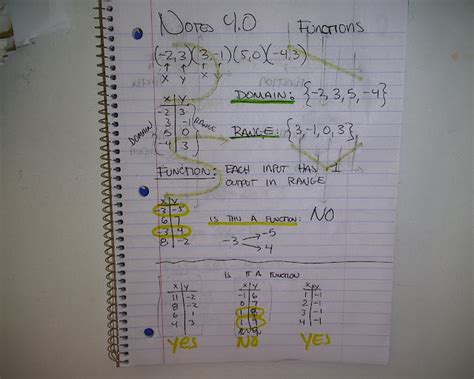 NOTES 4.0 FUNCTIONS
(-2,3)(3,-1)(5,0)(-4,3)
X Y X
DOMAIN: {-2, 3, 5, -4}
X Y
-2 3
3 -1
5 0
-4 3
DOMAIN
RANGE
RANGE: {3, -1, 0, 3}
FUNCTION: EACH INPUT HAS 1
OUTPUT IN RANGE
X Y
-3 -5
6 7
-3 4
8 -2
IS THIS A FUNCTION: NO
-3 -5
4
IS IT A FUNCTION
X Y
11 -2
8 -2
6 1
4 3
YES
X Y
-1 6
0 7
1 8
1 9
NO
X Y
1 -1
2 -1
3 -1
4 -1
YES